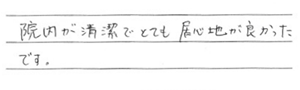 院内が清潔でとても居心地が良かった
です。